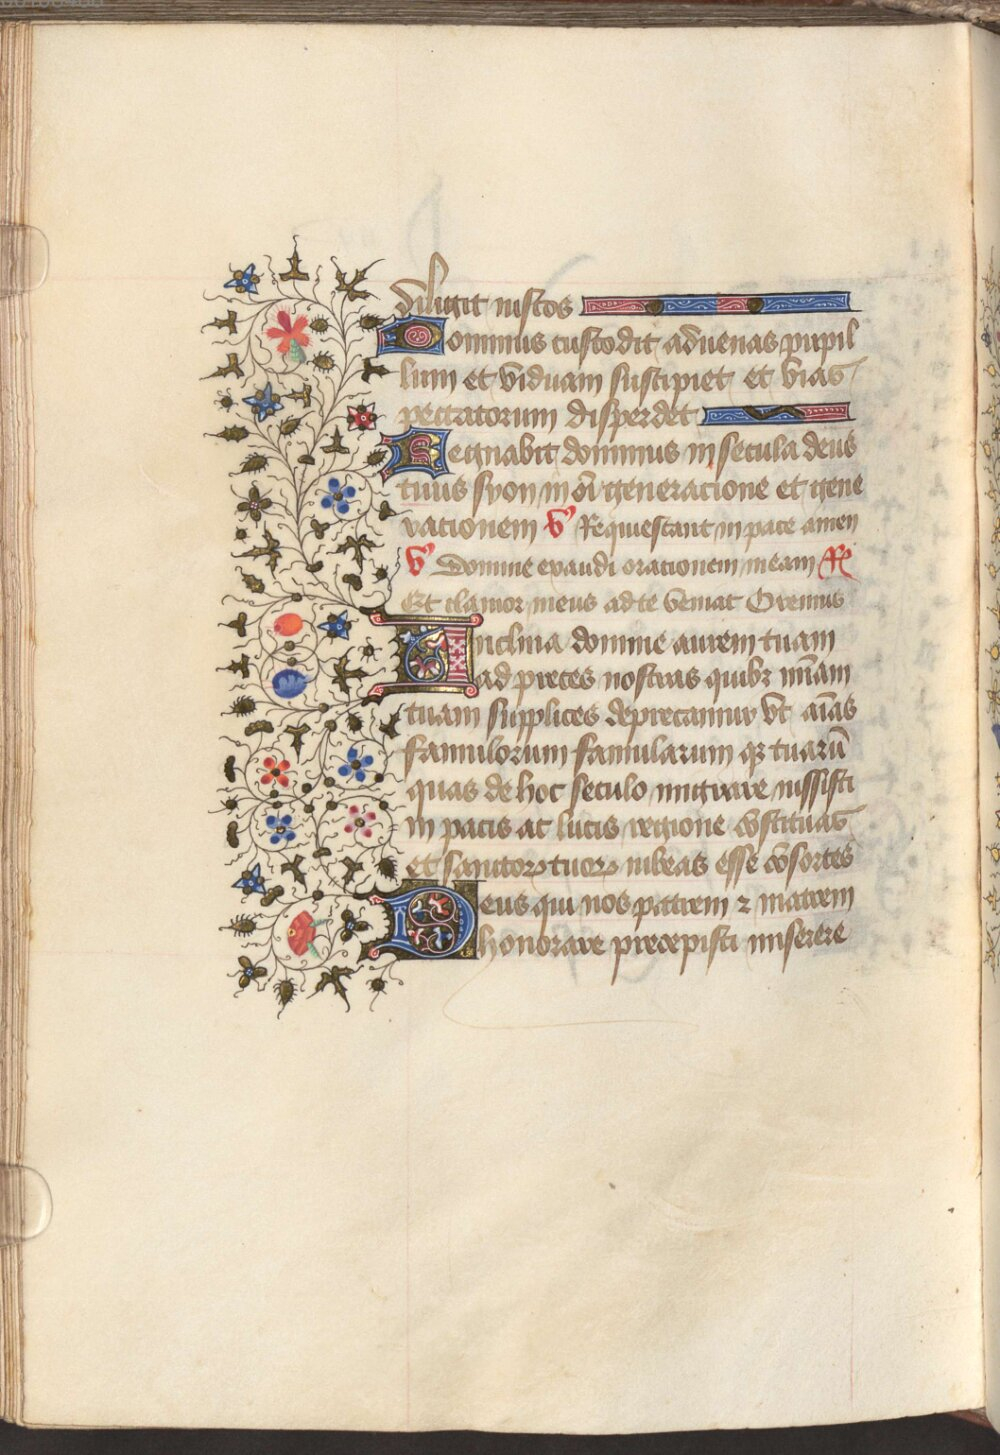 diligit iustos
Dominus custodit aduenas pupil
lum et viduam suscipiet et vias
peccatorum disperdet
Regnabit dominus in secula deus
tuus syon in oi͞ generacione et gene
rationem V Requiescant in pace amen
V Domine exaudi orationem meam R
Et clamor meus ad te veniat Oremus
Inclina domine aurem tuam
ad preces nostras quibꝫ mīam
tuam supplices deprecamur vt aīas
famulorum famularum qꝫ tuarū
quas de hoc seculo migrare iussisti
in pacis ac lucis regione ꝯstituas
et sanctoꝝ tuoꝝ iubeas esse ꝯsortes
Deus qui nos patrem ⁊ matrem
honorare precepisti miserere